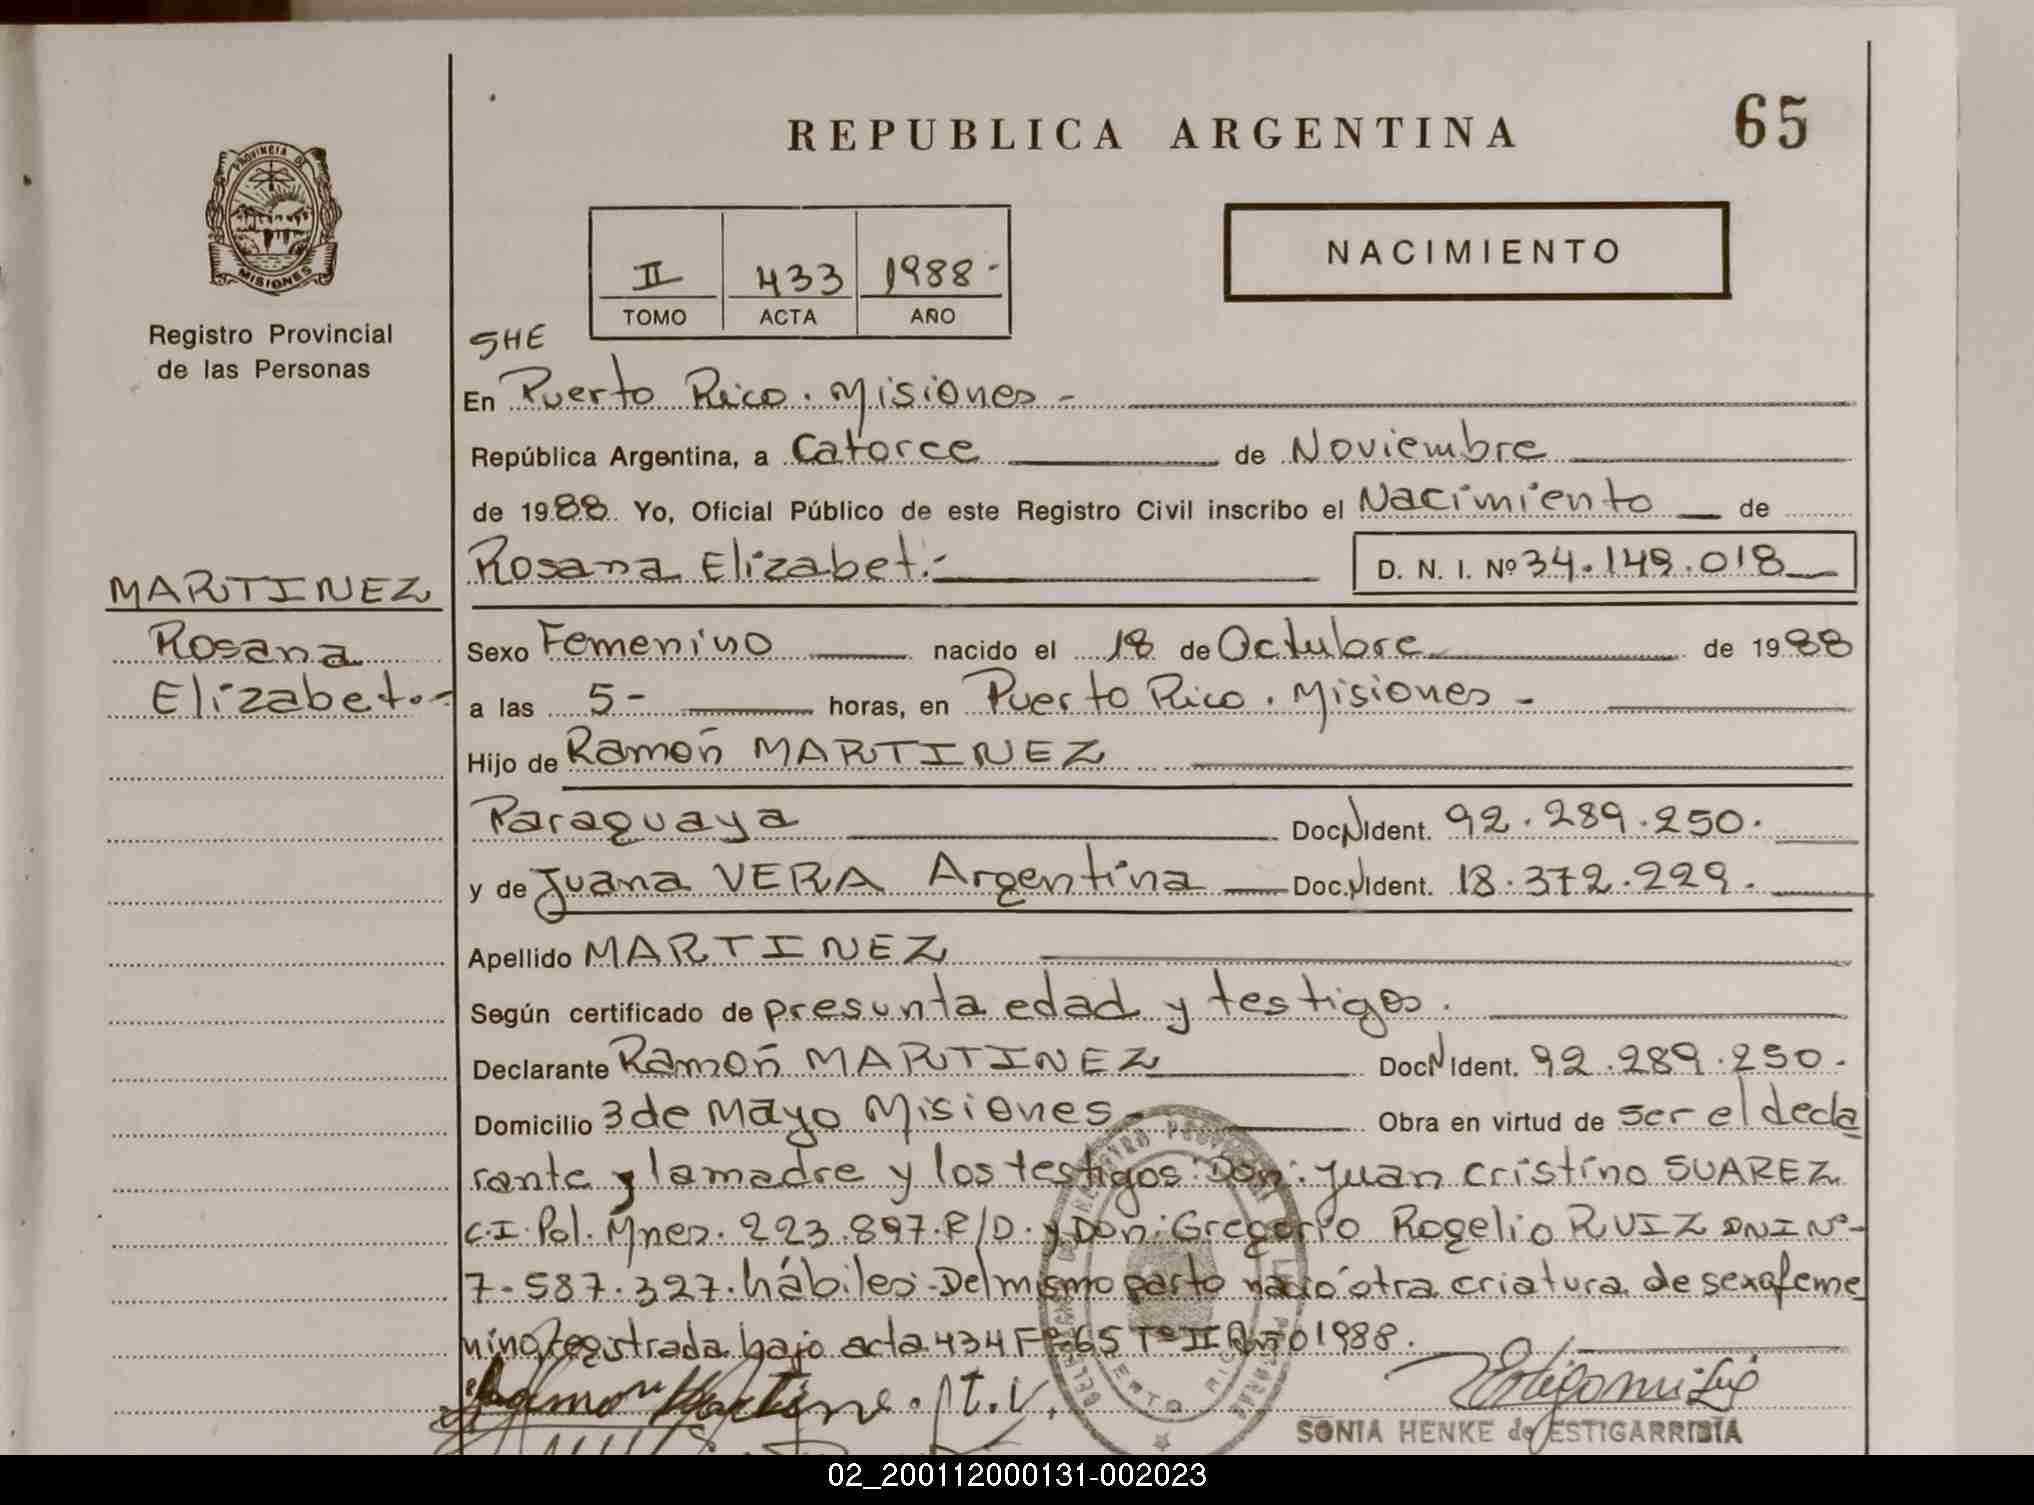 REPUBLICA ARGENTINA
65
PROVINCIA DE
MISIONES
Registro Provincial
de las Personas
II 433 1988-
TOMO ACTA AÑO
NACIMIENTO
SHE
En Puerto Rico. Misiones-
República Argentina, a Catorce de Noviembre
de 1988 Yo, Oficial Público de este Registro Civil inscribo el Nacimiento de
Rosana Elizabet.- D. N. I. Nº 34.149.018
MARTINEZ
Rosana
Elizabet.-
Sexo Femenino nacido el 18 de Octubre de 1988
a las 5- horas, en Puerto Rico. Misiones-
Hijo de Ramón MARTINEZ
Paraguaya Doc. N Ident. 92.289.250.
y de Juana VERA Argentina Doc. N Ident. 18.372.229.
Apellido MARTINEZ
Según certificado de presunta edad y testigos.
Declarante Ramón MARTINEZ Doc N Ident. 92.289.250.
Domicilio 3 de Mayo Misiones- Obra en virtud de ser el decla
rante y la madre y los testigos: Don: Juan Cristino SUAREZ
C.I. Pol. Mnes. 223.897.R/D. y Don: Gregorio Rogelio RUIZ DNI Nº-
7.587.327. hábiles-Del mismo parto nació otra criatura de sexo feme
nino registrada bajo acta 434 Fº 65 Tº II Año 1988.
Ramon Martine
SONIA HENKE de ESTIGARRIBIA
02_200112000131-002023